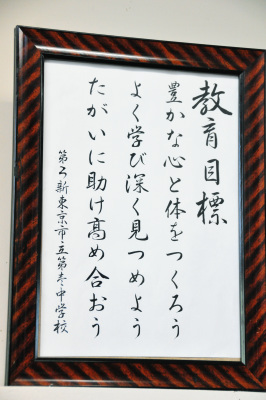 教育目標
豊かな心と体をつくろう
よく学び深く見つめよう
たがいに助け高め合おう
第3新東京市立第壱中学校